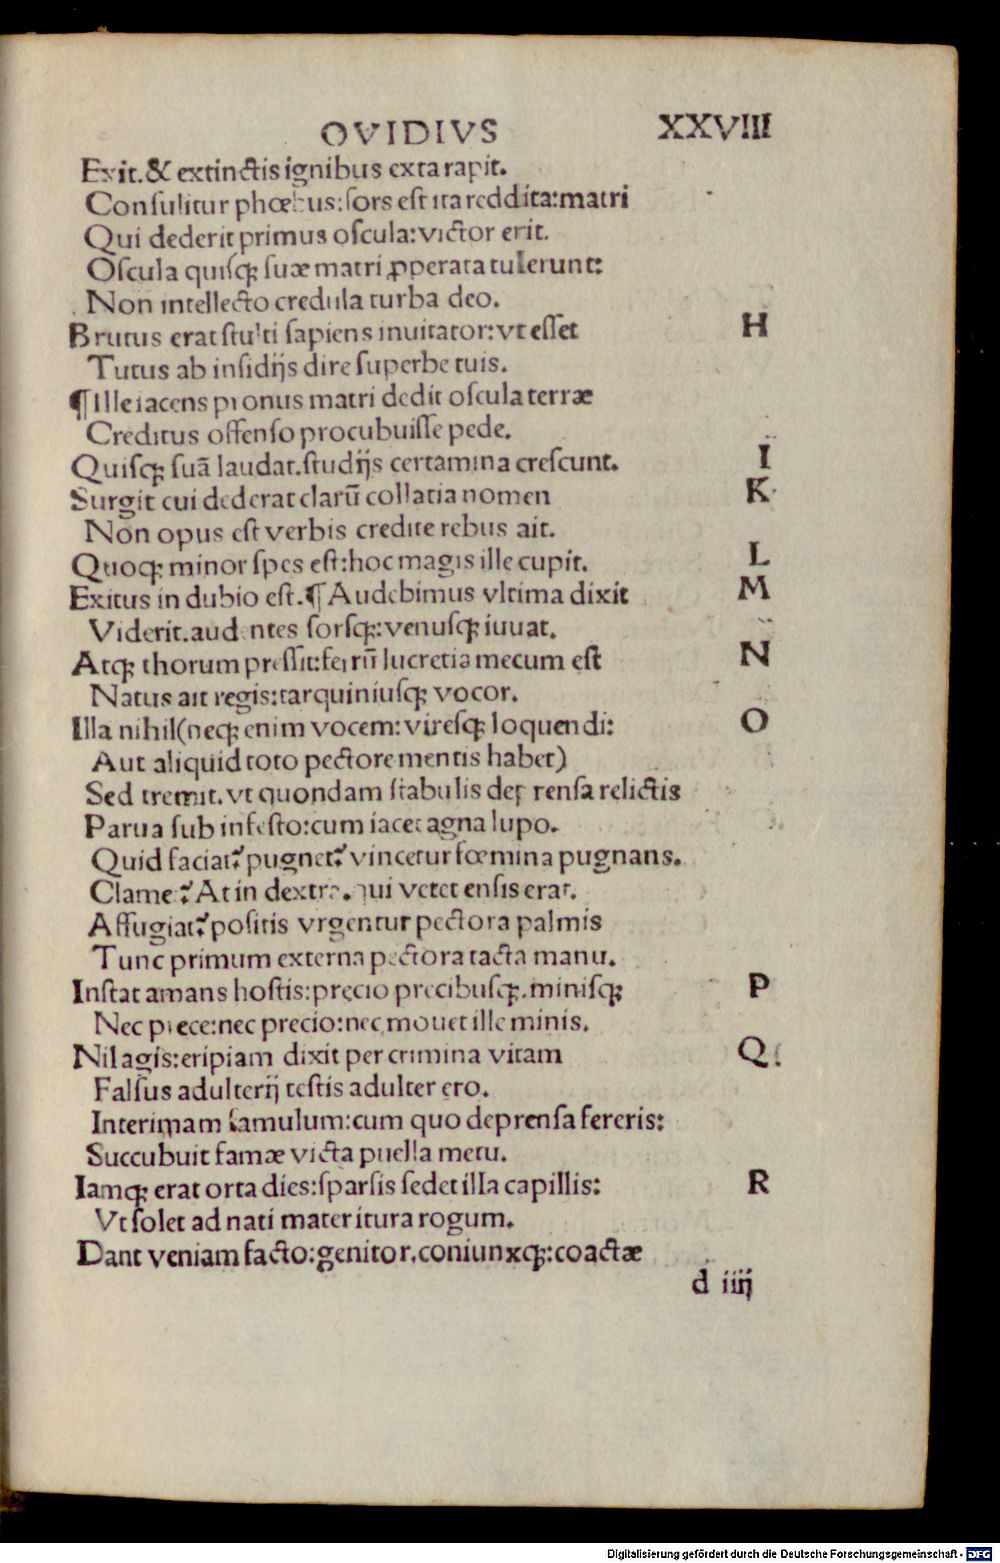 OVIDIVS XXVIII
Exit.& extinctis ignibus exta rapit.
Consulitur phœbus:sors est ita reddita:matri
Qui dederit primus oscula:victor erit.
Oscula quisqꝫ suæ matri ꝓperata tulerunt:
Non intellecto credula turba deo.
Brutus erat stulti sapiens inuitator:vt esset H
Tutus ab insidijs dire superbe tuis.
¶Ille iacens pronus matri dedit oscula terræ
Creditus offenso procubuisse pede.
Quisqꝫ suā laudat.studijs certamina crescunt. I
Surgit cui dederat clarū collatia nomen K
Non opus est verbis credite rebus ait.
Quoqꝫ minor spes est:hoc magis ille cupit. L
Exitus in dubio est.¶Audebimus vltima dixit M
Viderit.audentes forsqꝫ:venusqꝫ iuuat.
Atqꝫ thorum pressit:ferrū lucretia mecum est N
Natus ait regis:tarquiniusqꝫ vocor.
Illa nihil(neqꝫ enim vocem:viresqꝫ loquendi: O
Aut aliquid toto pectore mentis habet)
Sed tremit.vt quondam stabulis deprensa relictis
Parua sub infesto:cum iacet agna lupo.
Quid faciat?pugnet?vincetur fœmina pugnans.
Clamet?At in dextra.qui vetet ensis erat.
Affugiat?positis vrgentur pectora palmis
Tunc primum externa pectora tacta manu.
Instat amans hostis:precio precibusqꝫ.minisqꝫ P
Nec prece:nec precio:nec mouet ille minis.
Nil agis:eripiam dixit per crimina vitam Q
Falsus adulterij testis adulter ero.
Interimam famulum:cum quo deprensa fereris:
Succubuit famæ victa puella metu.
Iamqꝫ erat orta dies:sparsis sedet illa capillis: R
Vt solet ad nati mater itura rogum.
Dant veniam facto:genitor.coniunxqꝫ:coactæ
d iiij
Digitalisierung gefördert durch die Deutsche Forschungsgemeinschaft - DFG